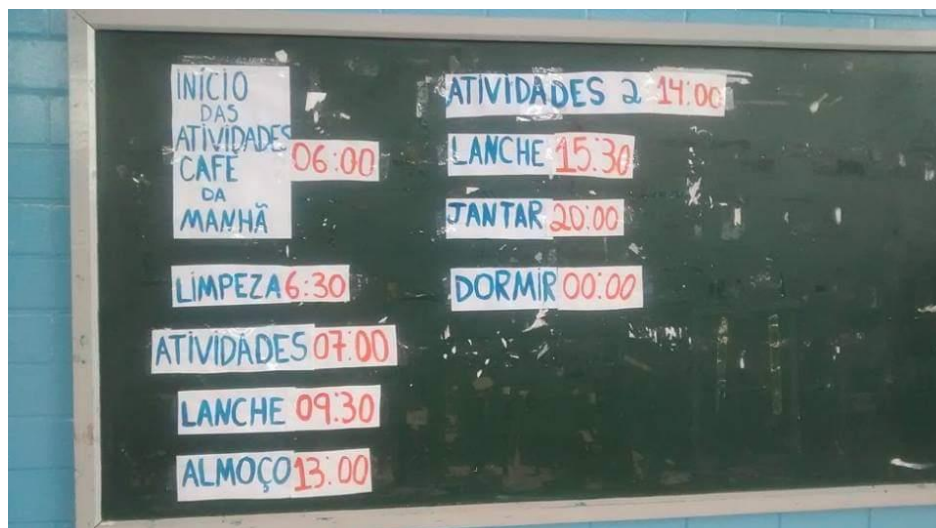 INÍCIO
DAS
ATIVIDADES
CAFÉ
DA
MANHÃ
06:00
LIMPEZA 6:30
ATIVIDADES 07:00
LANCHE 09:30
ALMOÇO 13:00
ATIVIDADES 2 14:00
LANCHE 15:30
JANTAR 20:00
DORMIR 00:00